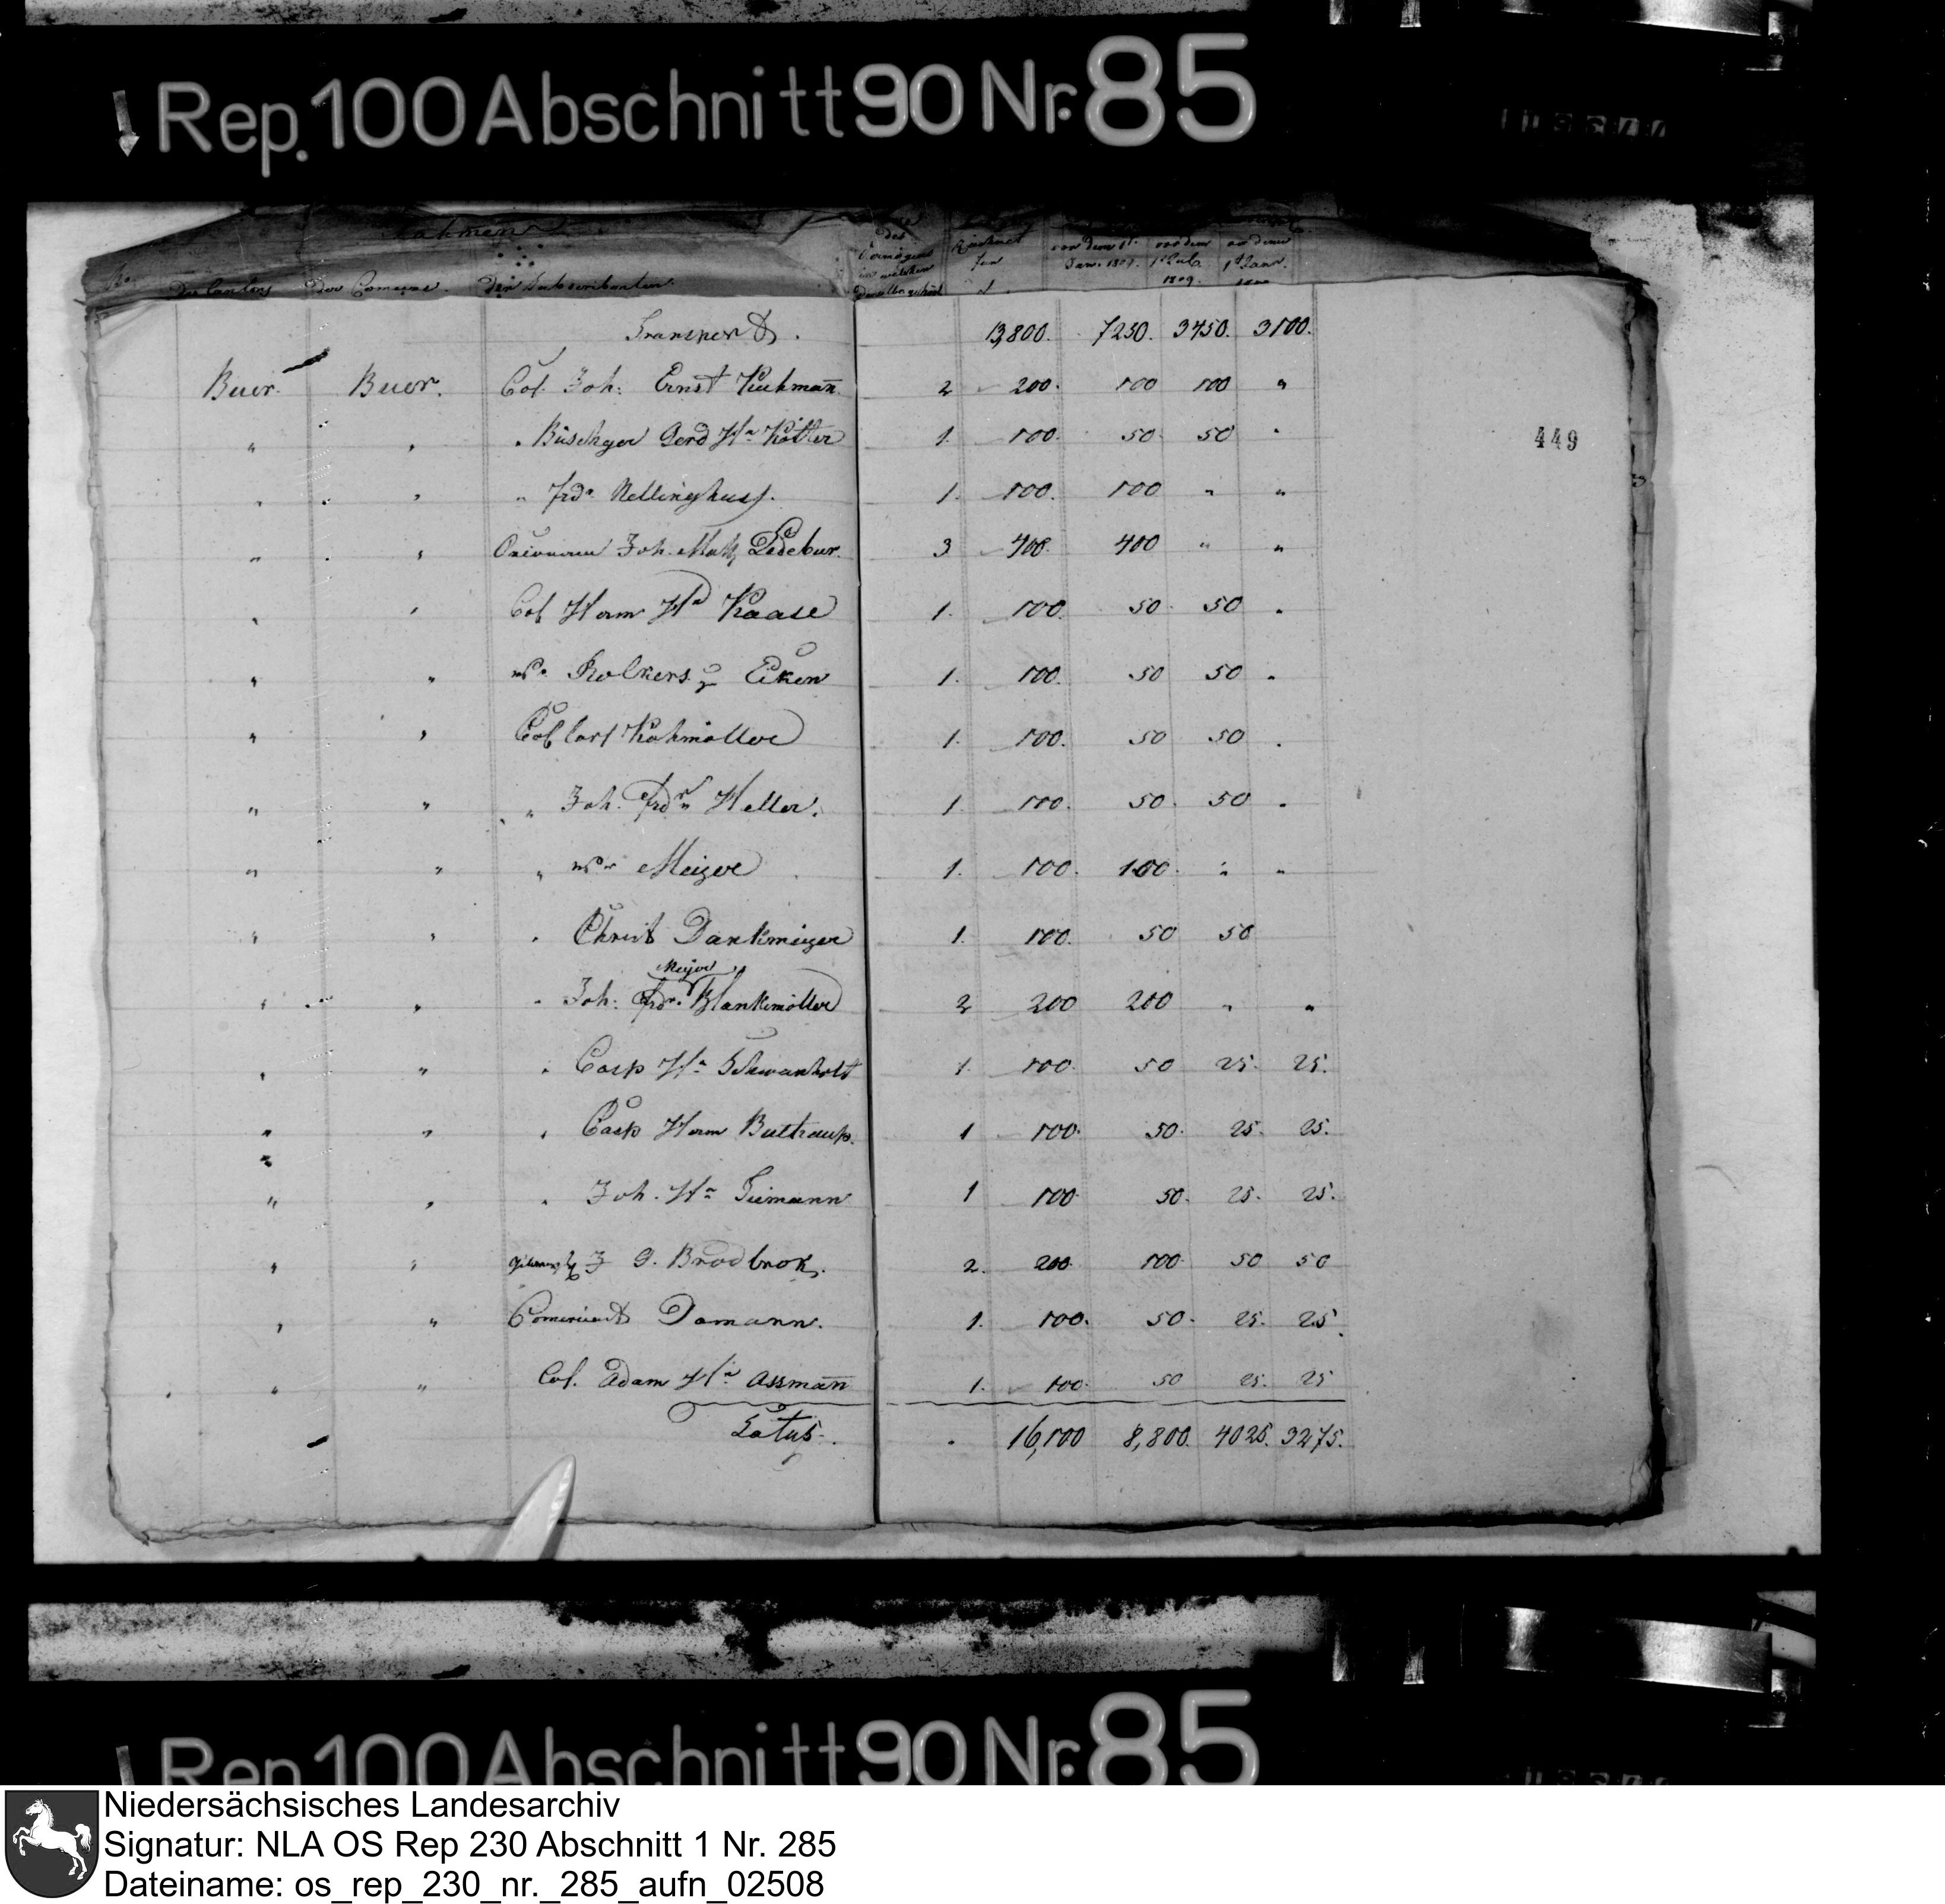 Rep. 100 Abschnitt 90 Nr. 85
Nahmen des
No. Des Cantons der Comune. Der Subscribenten. Vermögens in welchen Dieselbe gehört
von dem 1t. Jan. 1809. von dem 1t Jul. 1809. von dem 1t Janr.
Transport. 13,800. 7250. 3450. 3100.
Buer. Buer. Col. Joh: Ernst Kuhmañ. 2 200. 100 100 "
" " " Büscher Gerd Hn Kötter 1. 100. 50. 50 "
" " " frdr Nellinghus. 1. 100. 100 " "
" " Joh. Ledebur. 3 400. 400 " "
" " Col Herm Hn Haase 1. 100. 50. 50 "
" " Wwe Rolkers Eiken 1. 100. 50 50 "
" " Col Carl Kohmöller 1. 100. 50 50 "
" " " Joh. frdr Heller. 1. 100. 50. 50 "
" " " Wwe Meizer 1. 100. 100. " "
" " " Christ Dankmeizer 1. 100. 50 50
Meyer
" " " Joh: frdr. Blankmöller 2 200 200 " "
" " " Casp Hn Schwanholt 1. 100. 50 25. 25.
" " " Casp Herm Bultraup. 1 100. 50. 25. 25.
" " " Joh. Hn Tiemann 1 100. 50. 25. 25.
" " J G. Brodbrok. 2. 200. 100. 50 50
" " Domann. 1. 100. 50. 25. 25.
" " Col. Adam Hn Assmañ 1. 100. 50 25. 25
Latus. 16,100 8,800. 4025. 3275.
449
Rep. 100 Abschnitt 90 Nr. 85
Niedersächsisches Landesarchiv
Signatur: NLA OS Rep 230 Abschnitt 1 Nr. 285
Dateiname: os_rep_230_nr._285_aufn_02508